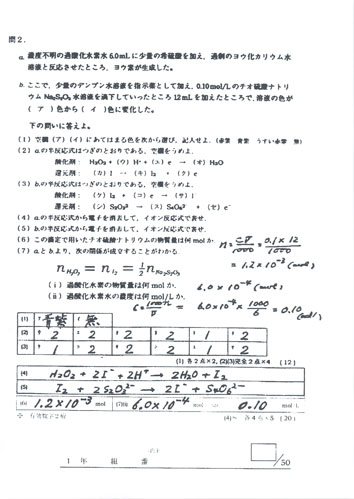 問２.
a. 濃度不明の過酸化水素水 6.0 mL に少量の希硫酸を加え、過剰のヨウ化カリウム水
溶液と反応させたところ、ヨウ素が生成した。
b. ここで、少量のデンプン水溶液を指示薬として加え、0.10 mol/L のチオ硫酸ナトリ
ウム Na₂S₂O₃ 水溶液を滴下していったところ 12 mL を加えたところで、溶液の色が
( ア ) 色から ( イ ) 色に変化した。
下の問いに答えよ。
(1) 空欄 (ア) (イ) にあてはまる色を次から選び、記入せよ. (赤紫 青紫 うすい赤紫 無)
(2) a.の半反応式はつぎのとおりである。空欄をうめよ.
酸化剤: H₂O₂ + (ウ) H⁺ + (エ) e → (オ) H₂O
還元剤: (カ) I → (キ) I₂ + (ク) e
(3) b.の半反応式はつぎのとおりである。空欄をうめよ.
酸化剤: (ケ) I₂ + (コ) e → (サ) I
還元剤: (シ) S₂O₃²⁻ → (ス) S₄O₆²⁻ + (セ) e⁻
(4) a.の半反応式から電子を消去して、イオン反応式で表せ.
(5) b.の半反応式から電子を消去して、イオン反応式で表せ.
(6) この滴定で用いたチオ硫酸ナトリウムの物質量は何 mol か. n = CV/1000 = 0.1×12/1000
= 1.2×10⁻³ (mol)
(7) a.と b.より、次の関係が成立することがわかる.
n H₂O₂ = n I₂ = 1/2 n Na₂S₂O₃
(ⅰ) 過酸化水素の物質量は何 mol か. 6.0×10⁻⁴ (mol)
(ⅱ) 過酸化水素水の濃度は何 mol/L か.
C = 1000n/V = 6.0×10⁻⁴ × 1000/6 = 0.10 (mol/L)
(1) ア 青紫 イ 無
(2) 2 2 2 2 1 2
(3) 1 2 2 2 1 2
(1) 各２点×2, (2)(3)完全２点×4 (12)
(4) H₂O₂ + 2I⁻ + 2H⁺ → 2H₂O + I₂
(5) I₂ + 2S₂O₃²⁻ → 2I⁻ + S₄O₆²⁻
(6) 1.2×10⁻³ mol (7)(i) 6.0×10⁻⁴ mol (ii) 0.10 mol/L
※ 有効数字２桁 (4)~ 各4点×5 (20)
１年 組 番 /50